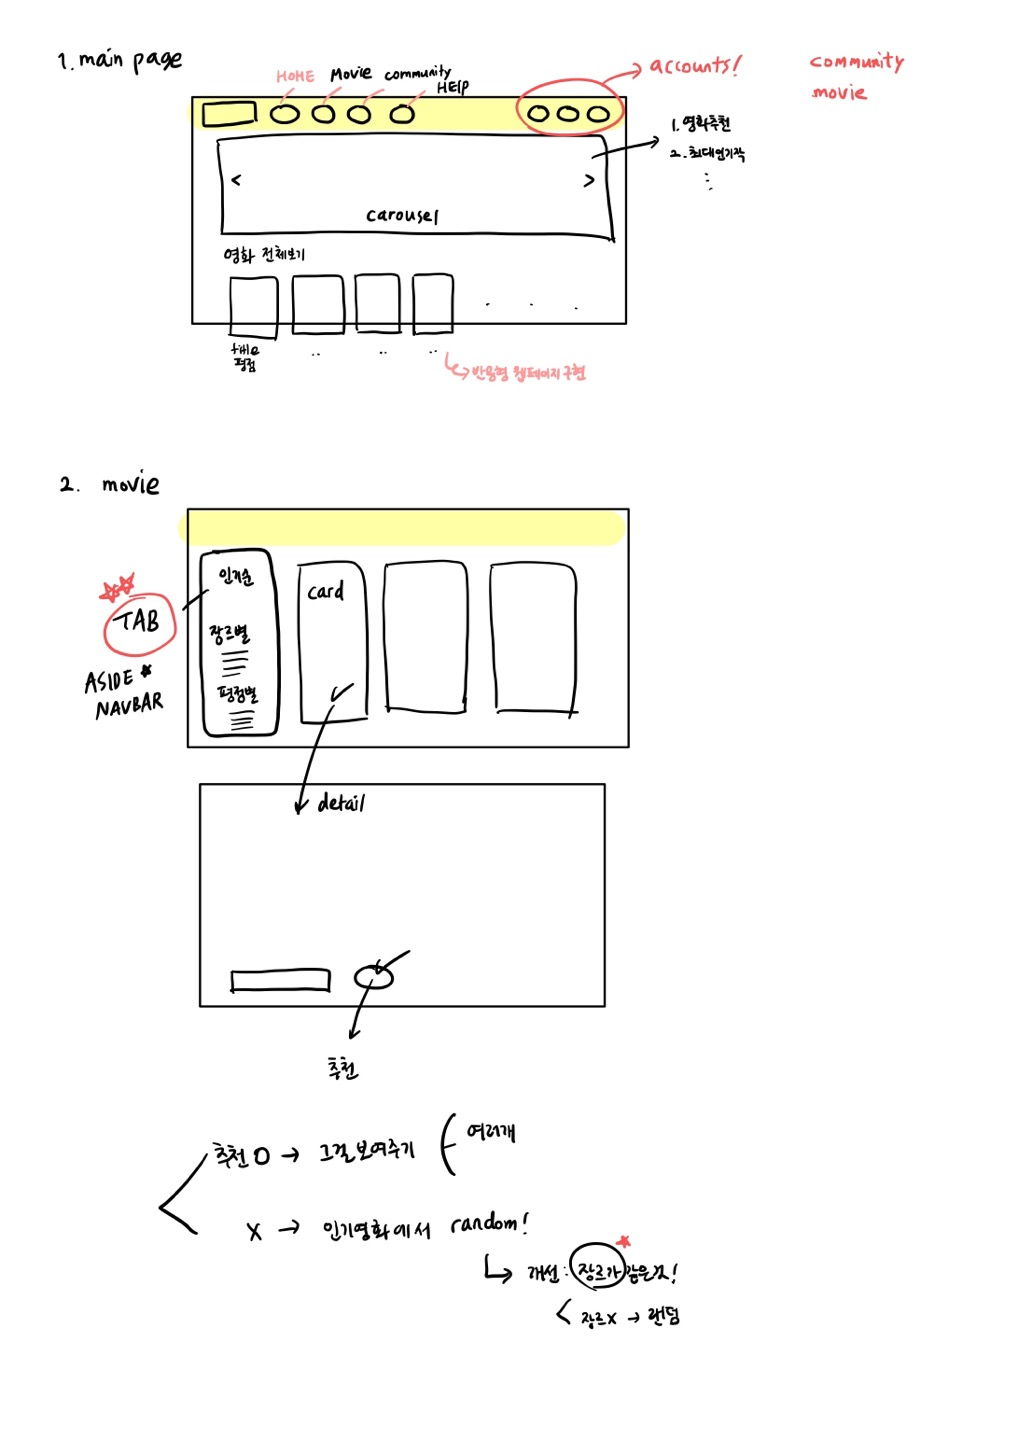 1. main page
HOME Movie community HELP
accounts!
community
movie
1. 영화추천
2. 최대인기작
<
>
carousel
영화 전체보기
title
평점
반응형 웹페이지 구현
2. movie
인기순
장르별
평점별
card
TAB
ASIDE
NAVBAR
detail
추천
추천 O → 그걸 보여주기
여러개
X → 인기영화에서 random!
개선 : 장르가 같은것!
장르 X → 랜덤